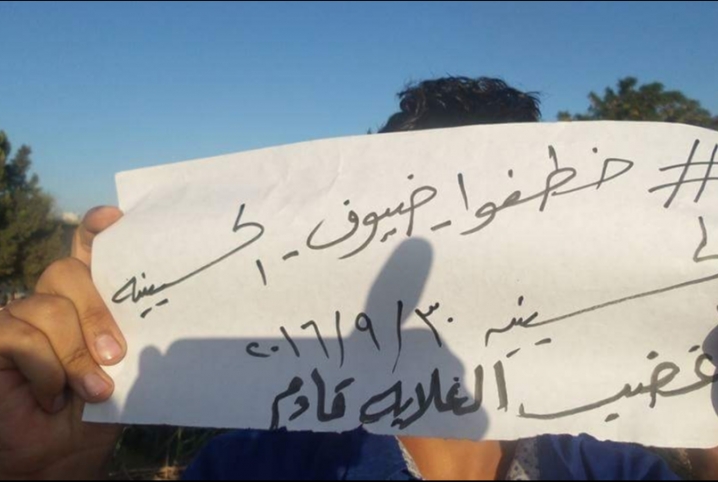 #خطفوا_ضيوف_الحسينيه
الحسينيه ٣٠/٩/٢٠١٦
غضب الغلابه قادم